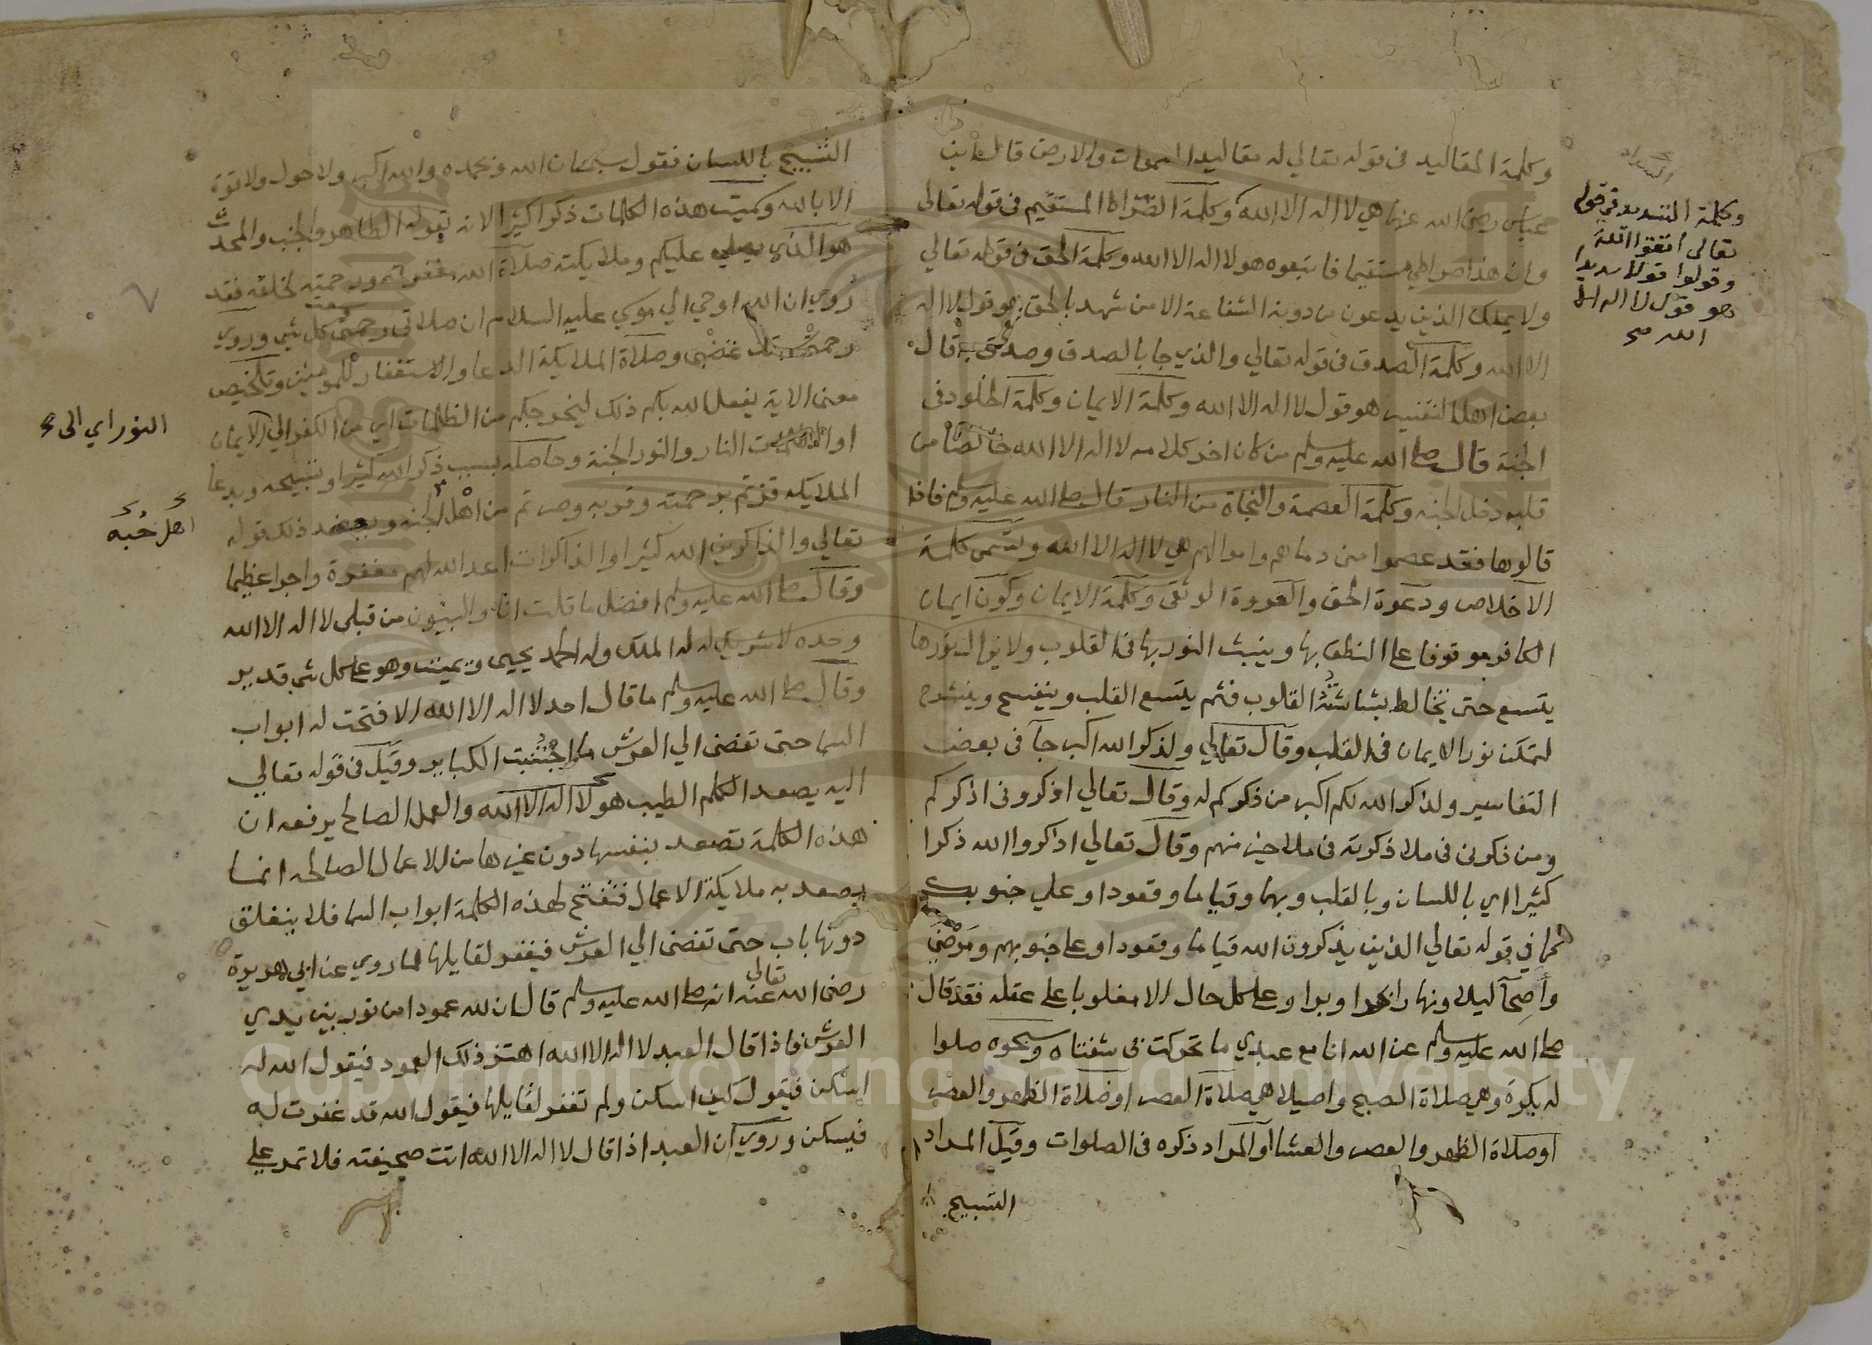 وكلمة المقاليد في قوله تعالي له مقاليد السموات والارض قال ابن
عباس رضي الله عنها هي لا اله الا الله وكلمة الصراط المستقيم في قوله تعالى
وان هذا صراطي مستقيما فاتبعوه هو لا اله الا الله وكلمة الحق في قوله تعالي
ولا يملك الذين يدعون من دونه الشفاعة الا من شهد بالحق هو قول لا اله
الا الله وكلمة الصدق في قوله تعالي والذي جا بالصدق وصدق به قال
بعض اهل التفسير هو قول لا اله الا الله وكلمة الايمان وكلمة الخلود في
الجنة قال صلى الله عليه وسلم من كان اخر كلامه لا اله الا الله خالصا من
قلبه دخل الجنه وكلمة العصمة والنجاة من النار قال صلى الله عليه وسلم فاذا
قالوها فقد عصموا مني دماهم واموالهم هي لا اله الا الله وتسمى كلمة
الاخلاص ودعوة الحق والعروة الوثقى وكلمة الايمان وكون ايمان
الكافر موقوفا على النطق بها وينبث النور بها في القلوب ولا يزال نورها
يتسع حتى تخالط بشاشته القلوب فثم يتسع القلب وينفسح وينشرح
لتمكن نور الايمان في القلب وقال تعالي ولذكر الله اكبر جآ في بعض
التفاسير ولذكر الله لكم اكبر من ذكركم له وقال تعالي اذكروني اذكركم
ومن ذكرني في ملا ذكرته في ملا خير منهم وقال تعالي اذكروا الله ذكرا
كثيرا اي باللسان وبالقلب وبهما وقياما وقعودا وعلي جنوبكم
كما في قوله تعالي الذين يذكرون الله قياما وقعودا وعلى جنوبهم ومرضى
واصحآ ليلا ونهارا وبرا وعلى كل حال الا مغلوبا على عقله فقد قال
صلى الله عليه وسلم عن الله انا مع عبدي ما تحركت بي شفتاه وسبحوه صلوا
له بكرة وهي صلاة الصبح واصيلا هي صلاة العصر او صلاة الظهر والعصر
او صلاة الظهر والعصر والعشا او المراد ذكره في الصلوات وقيل المراد
التسبيح
وكلمة التسديد في قوله
تعالى اتقوا الله
وقولوا قولا سديدا
هو قول لا اله الا
الله صح
التسبيح باللسان فقول سبحان الله وبحمده والله اكبر ولا حول ولا قوة
الا بالله وكميت هذه الكلمات ذكرا كثيرا لانه يقوله الطاهر والجنب والمحدث
هو الذي يصلي عليكم وملايكته صلاة الله مغفرته ورحمته لخلقه فقد
روي ان الله اوحي الي موسي عليه السلام ان صلاتي رحمتي وسعت كل شي وروي
رحمتي غضبي وصلاة الملايكة الدعا والاستغفار للمومنين وتلخيص
معنى الاية يفعل الله بكم ذلك ليخرجكم من الظلمات اي من الكفر الي الايمان
او الظلمات النار والنور الجنة وحاصله بسبب ذكر الله كثيرا وتسبيحه وبدعا
الملايكه قربتم برحمته وقربه وصرتم من اهل الجنه ويعضد ذلك قوله
تعالي والذاكرين الله كثيرا والذاكرات اعد الله لهم مغفرة واجرا عظيما
وقال صلى الله عليه وسلم افضل ما قلت انا والنبيون من قبلي لا اله الا الله
وحده لا شريك له له الملك وله الحمد يحيى ويميت وهو على كل شي قدير
وقال صلى الله عليه وسلم ما قال احد لا اله الا الله الا فتحت له ابواب
السما حتى تفضى الي العرش ما اجتنبت الكباير وقيل في قوله تعالي
اليه يصعد الكلم الطيب هو لا اله الا الله والعمل الصالح يرفعه ان
هذه الكلمة تصعد بنفسها دون غيرها من الاعمال الصالحه انما
يصعد به ملايكة الاعمال فتفتح لهذه الكلمة ابواب السما فلا ينغلق
دونها باب حتى تفضى الي العرش فيغفر لقايلها لما روي عن ابي هريرة
رضي الله تعالى عنه انه صلى الله عليه وسلم قال ان لله عمودا من نور بين يدي
العرش فاذا قال العبد لا اله الا الله اهتز ذلك العمود فيقول الله له
اسكن فيقول كيف اسكن ولم تغفر لقايلها فيقول الله قد غفرت له
فيسكن وروي ان العبد اذا قال لا اله الا الله اتت صحيفته فلا تمر علي
النور اي الى
اهل حبه
Copyright © King Saud University